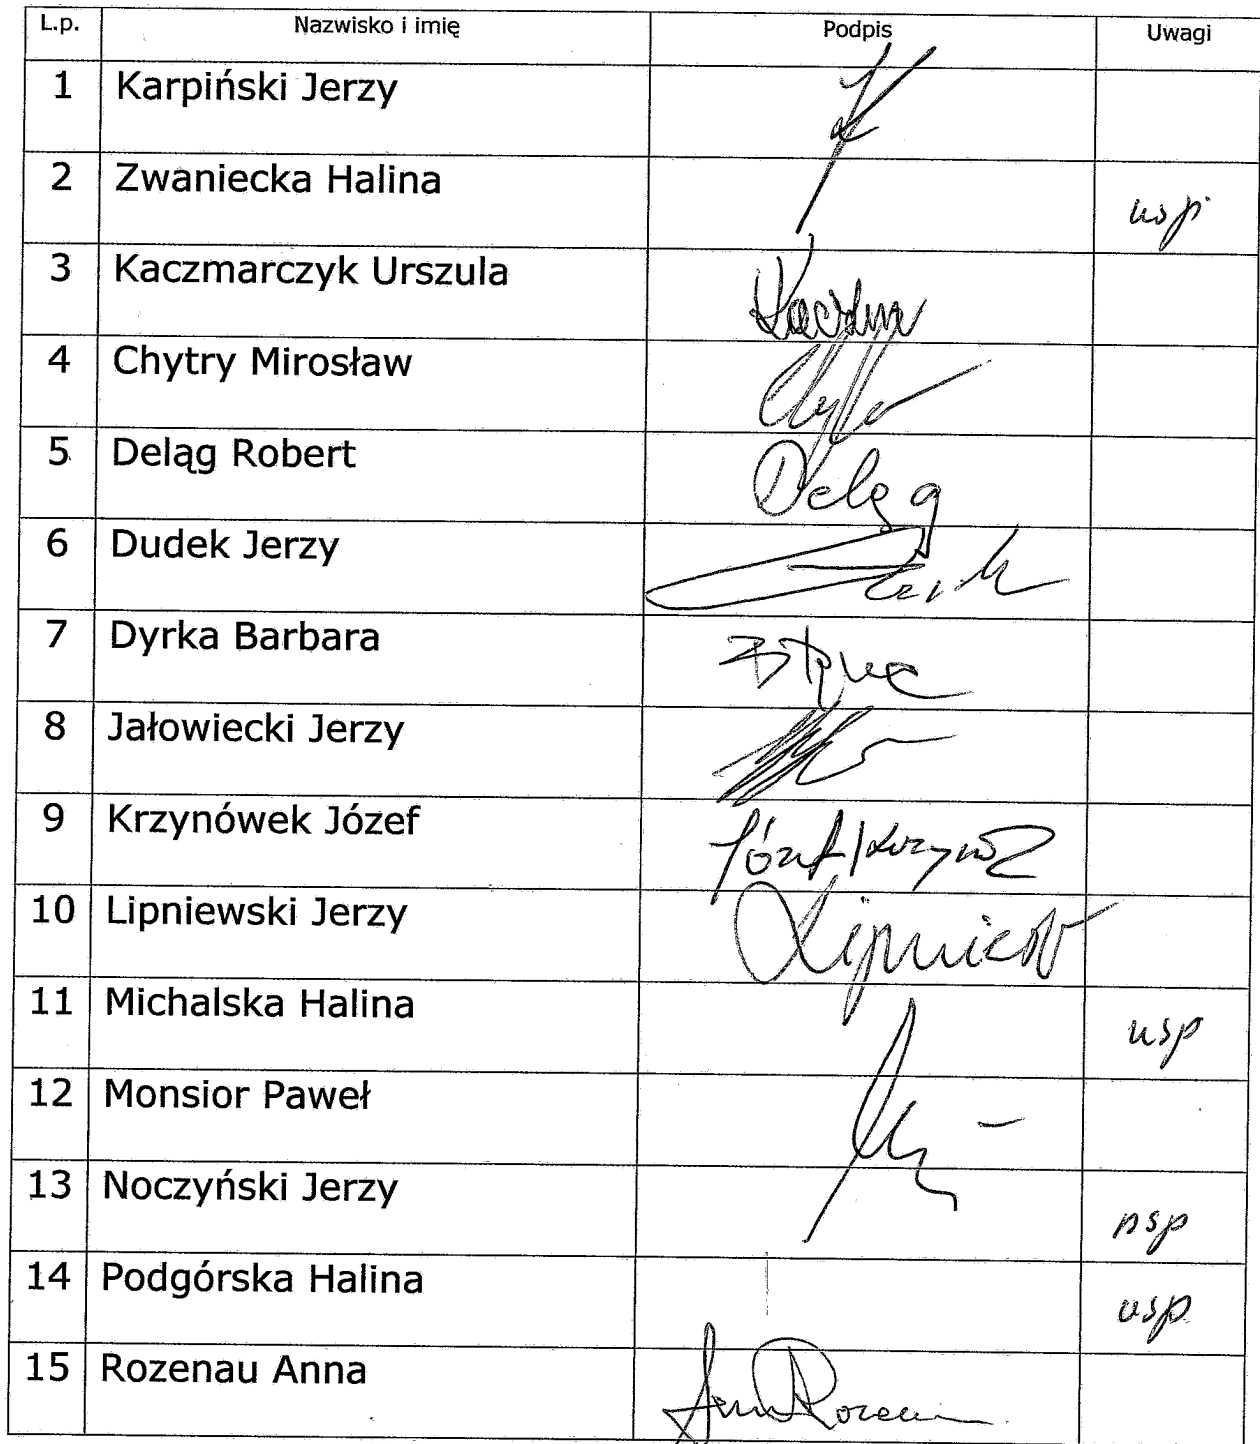 L.p. Nazwisko i imię Podpis Uwagi
1 Karpiński Jerzy
2 Zwaniecka Halina usp
3 Kaczmarczyk Urszula Kaczm
4 Chytry Mirosław
5 Deląg Robert Deląg
6 Dudek Jerzy
7 Dyrka Barbara
8 Jałowiecki Jerzy
9 Krzynówek Józef Józef
10 Lipniewski Jerzy
11 Michalska Halina usp
12 Monsior Paweł
13 Noczyński Jerzy nsp
14 Podgórska Halina usp
15 Rozenau Anna